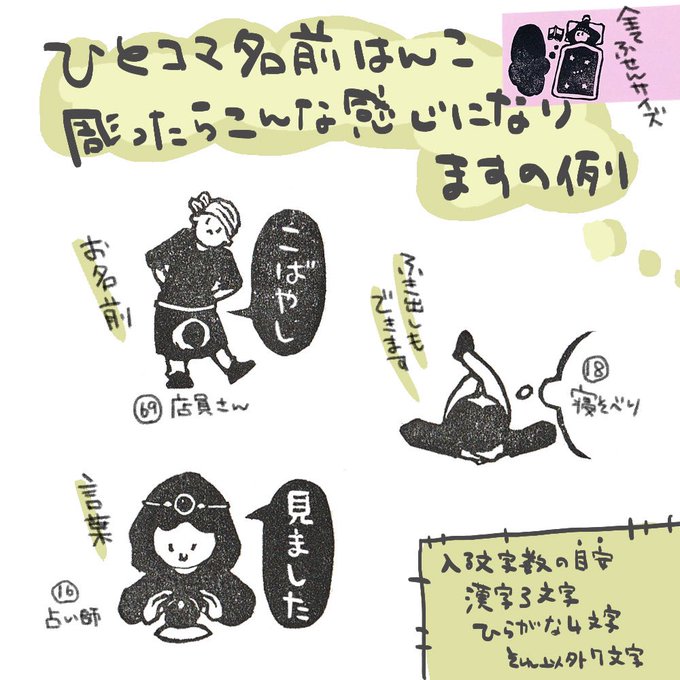 ひとコマ名前はんこ
彫ったらこんな感じになり
ますの例
全てふせんサイズ
お名前
こばやし
69 店員さん
ふき出しも
できます
18
寝そべり
言葉
見ました
16
占い師
入る文字数の目安
漢字3文字
ひらがな4文字
それ以外7文字